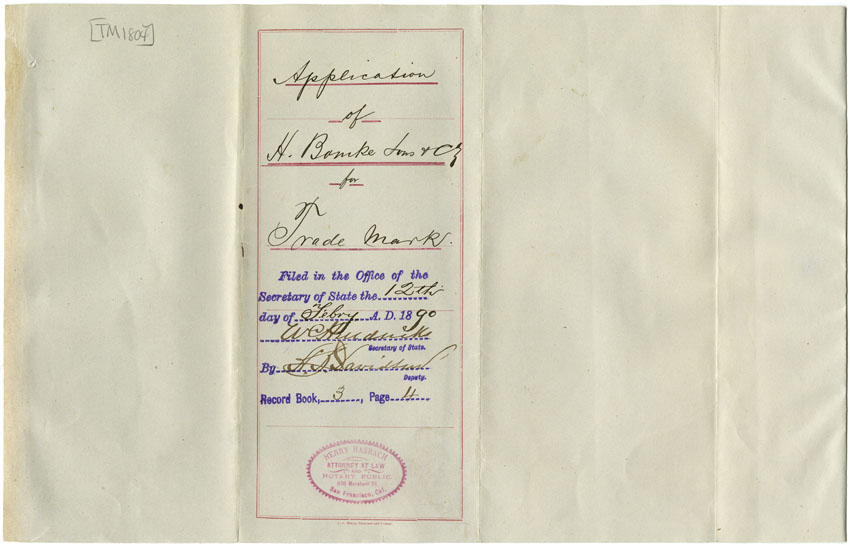 [TM1804]
Application
of
H. Bomke Sons & Co
for
Trade Mark.
Filed in the Office of the
Secretary of State the 12th
day of Febry A. D. 1890
W C Hendricks
Secretary of State.
By Davidson
Deputy.
Record Book, 3, Page 4
ATTORNEY AT LAW
AND
NOTARY PUBLIC
San Francisco, Cal.